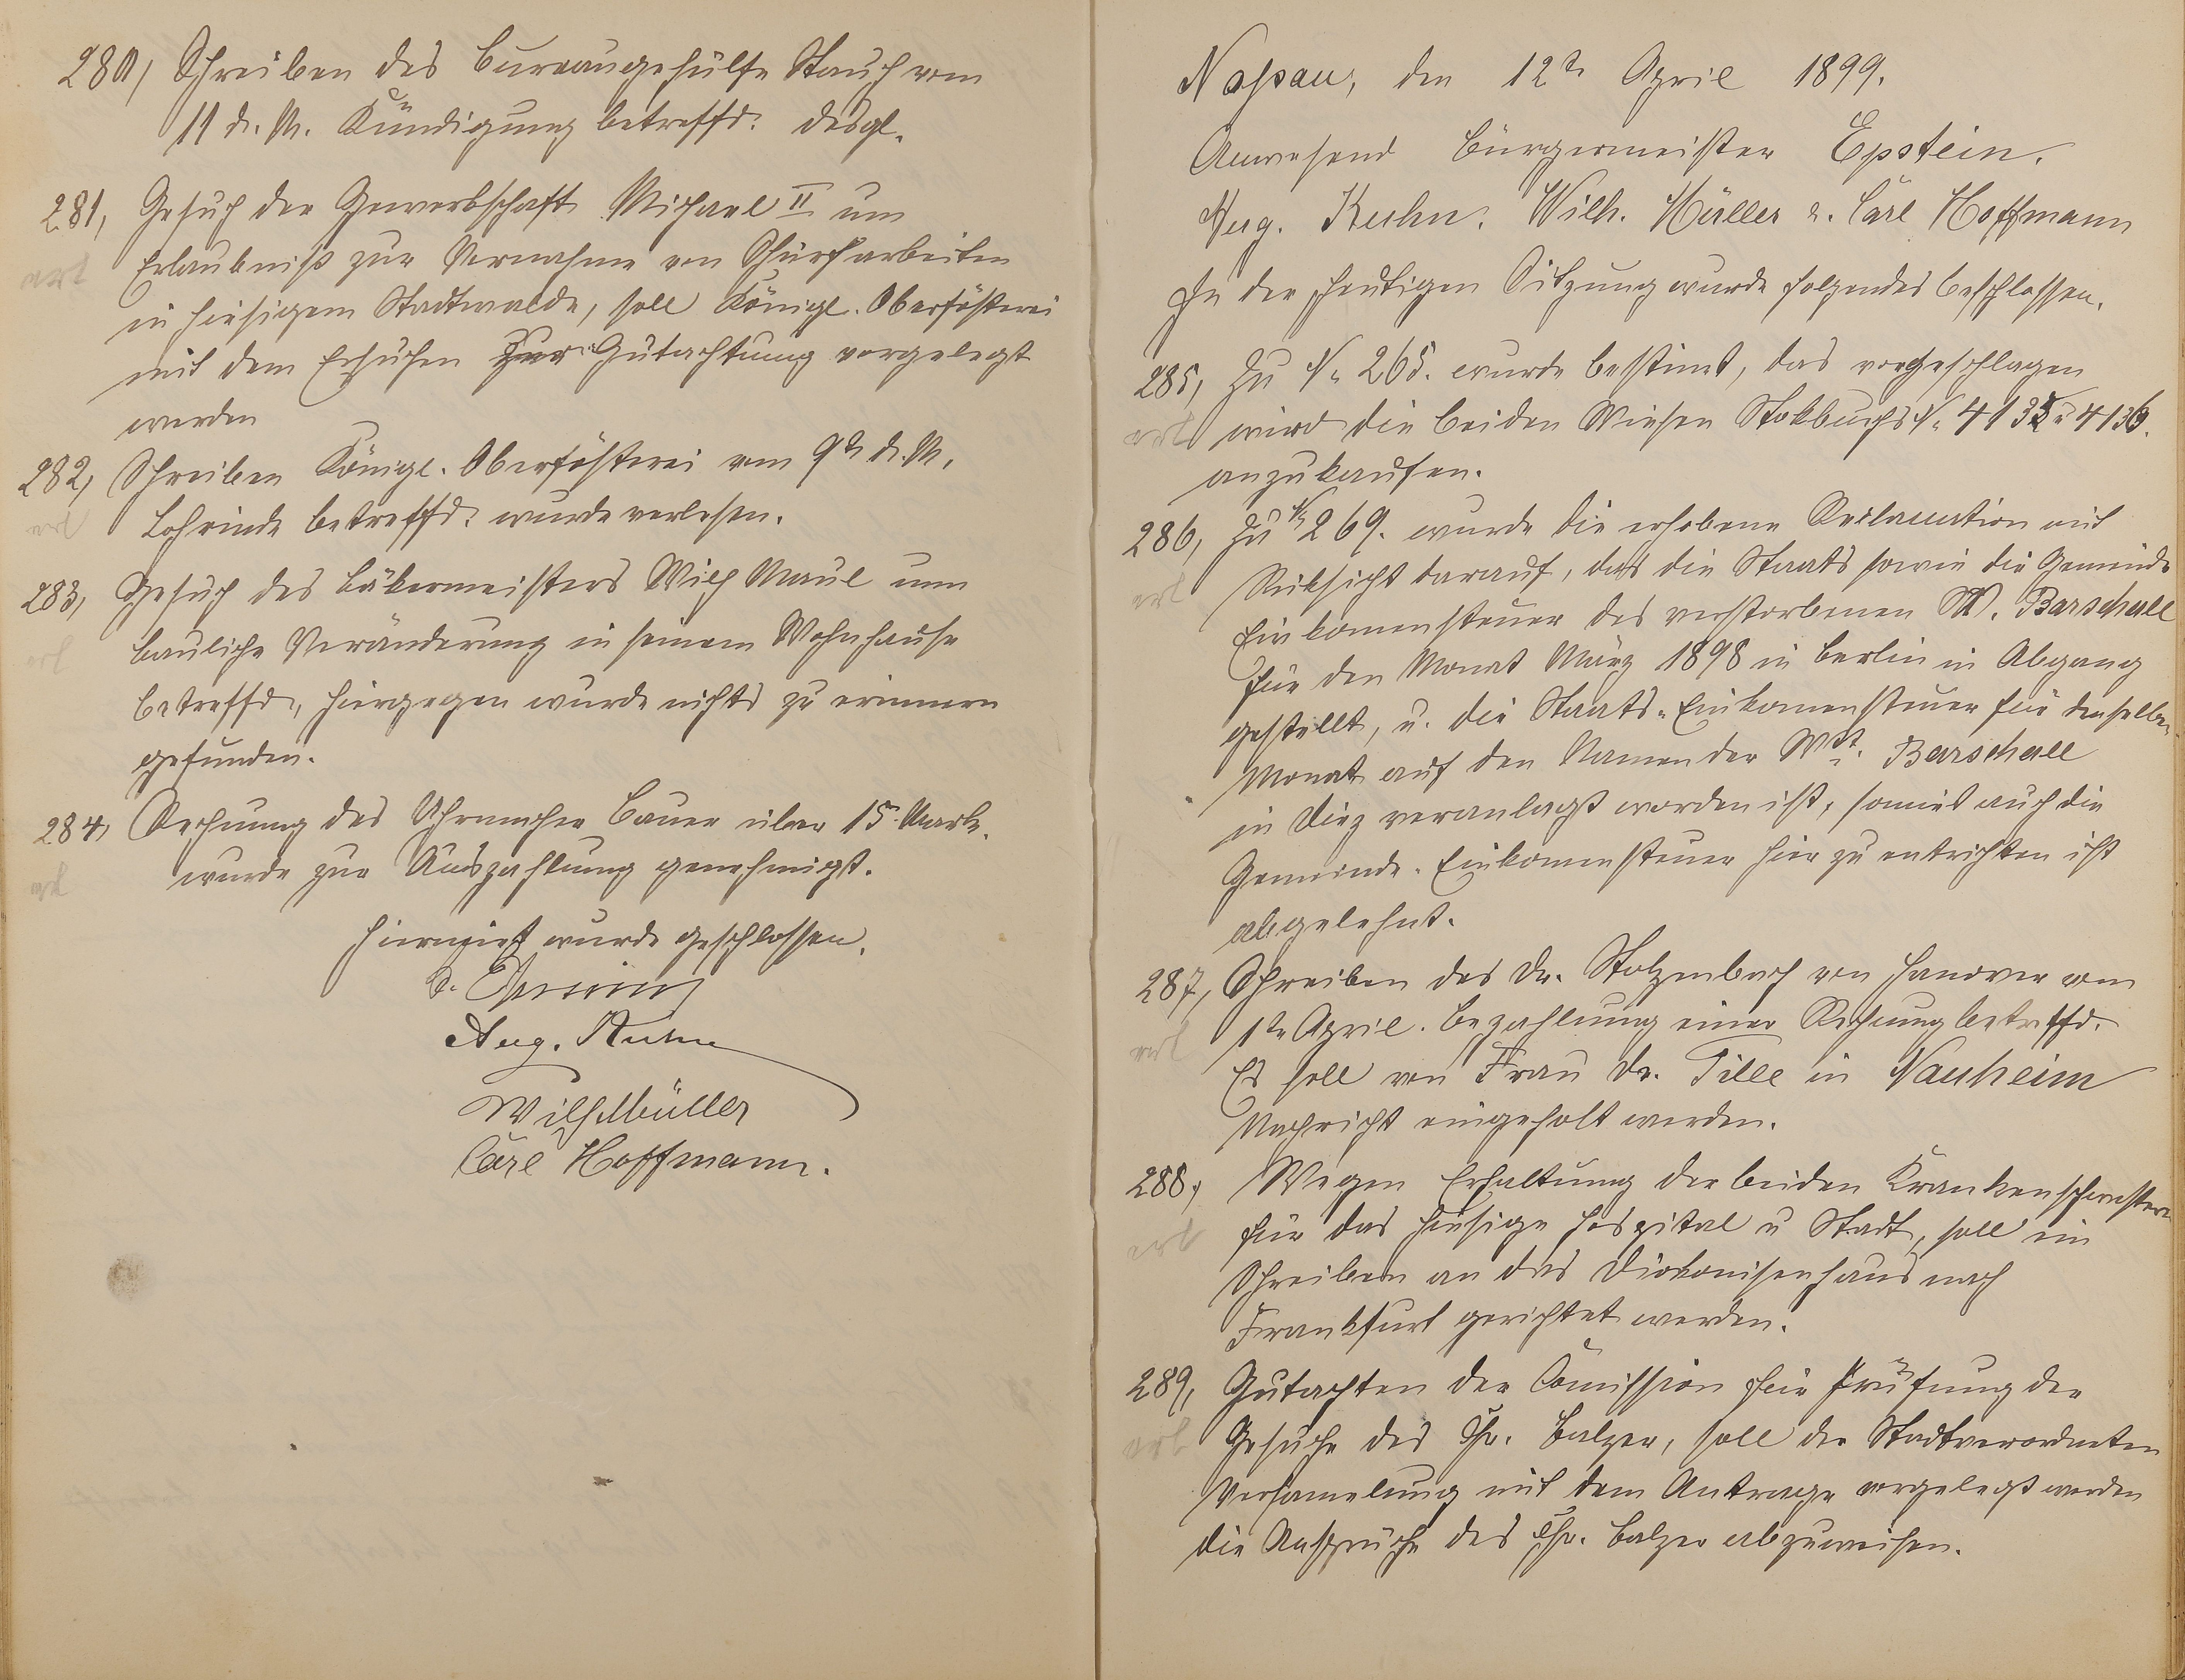 280, Schreiben des Bureaugehülfe Stauch vom
11 d. M. Kündigung betreffd. desgl.
281, Gesuch der Gewerkschaft Michael II um
erl
Erlaubniß zur Vornahme von Schürfarbeiten
in hiesigem Stadtwalde, soll Königl. Oberfösterei
mit dem Ersuchen zur Gutachtung vorgelegt
werden
282, Schreiben Königl. Oberfösterei vom 9ten d. M.
erl
Lohrinde betreffd. wurde verlesen.
283, Gesuch des Bäkermeisters Wilh Maul um
erl
bauliche Veränderung in seinem Wohnhause
betreffd, hiergegen wurde nichts zu erinnern
gefunden.
284, Rechnung des Uhrmacher Bauer über 15 Mark.
erl
wurde zur Auszahlung genehmigt.
Hiermit wurde geschlossen.
Aug. Kuhn
Wilh Müller
Carl Hoffmann.
Nassau, den 12te April 1899.
Anwesend Bürgermeister Epstein.
Aug. Kuhn. Wilh. Müller u. Carl Hoffmann
In der heutigen Sitzung wurde folgendes beschlossen.
285, Zu N. 265. wurde bestimt, das vorgeschlagen
erl
wird die beiden Wiesen Stokbuchs N. 4135 u 4136.
anzukaufen.
286, Zu N. 269. wurde die erhobene Reclamation mit
erl
Rüksicht darauf, das die Staats sowie die Gemeinde
Einkomensteuer des verstorbenen W. Barschall
für den Monat März 1898 in Berlin in Abgang
gestellt, u. die Staats-Einkomensteuer für denselben
Monat auf den Namen der Wtt. Barschall
in Diez veranlagt worden ist, somit auch die
Gemeinde-Einkomensteuer hier zu entrichten ist
abgelehnt.
287, Schreiben des Dr. Stolzenbach von Hanover vom
erl
1te April. Bezahlung einer Rechnung betreffd.
Es soll von Frau Dr. Tille in Nauheim
Nachricht eingeholt werden.
288, Wegen Erhaltung der beiden Krankenschwestern
erl
für das hiesige Hospital u Stadt, soll ein
Schreiben an das Diakonisenhaus nach
Frankfurt gerichtet werden.
289, Gutachten der Comission für Prüfung der
erl
Gesuche des Chr. Balzer, soll der Stadtverordneten
Versamelung mit dem Antrage vorgelegt werden
die Ansprüche des Chr. Balzer abzuweisen.